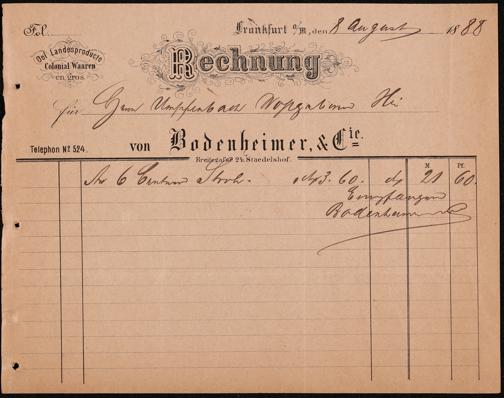 Fol.
Frankfurt a/M, den 8 August 1888
Oel Landesproducte
Colonial Waaren
en gros.
Rechnung
für Herrn
von Bodenheimer, & Cie.
Telephon No 524.
Kreuzgasse 24. Staedelshof.
M Pf.
An 6 Centner Stroh. M 3. 60. M 21 60.
Empfangen
Bodenheimer & Co